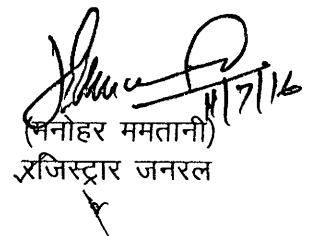 11/7/16
(मनोहर ममतानी)
रजिस्ट्रार जनरल